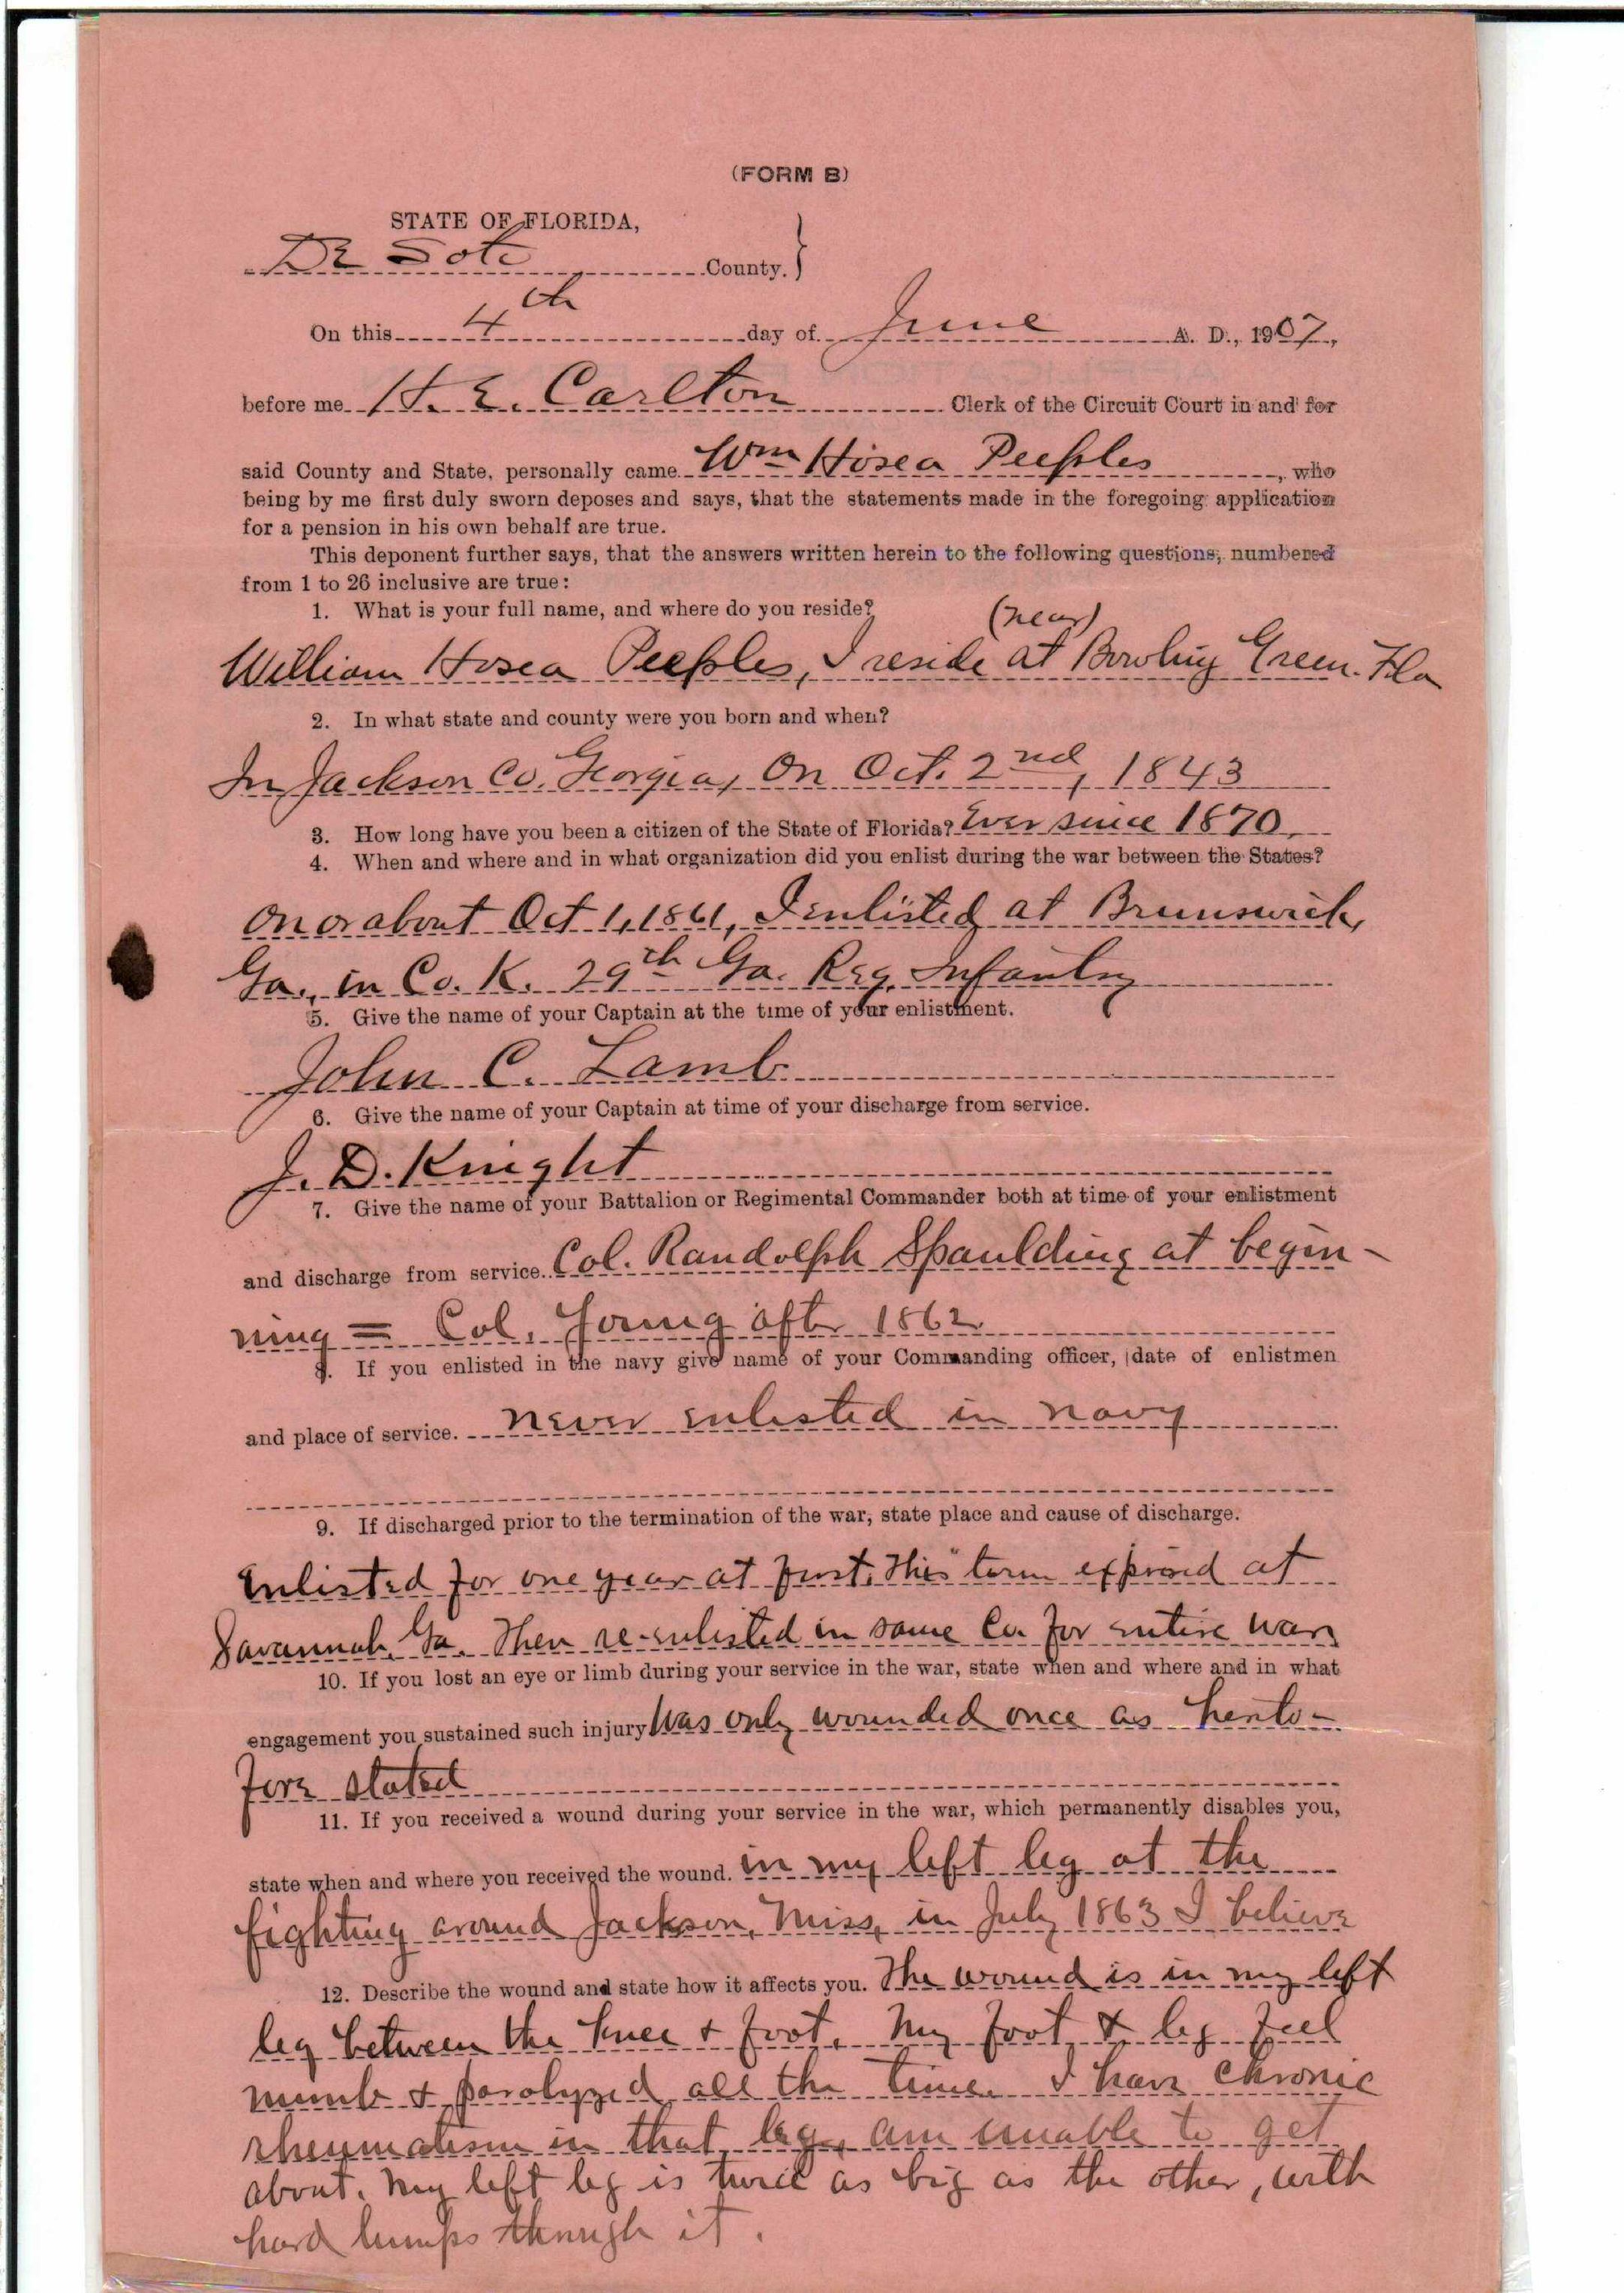 (FORM B)
STATE OF FLORIDA,
De Soto County.
On this 4th day of June A. D., 1907,
before me H. E. Carlton Clerk of the Circuit Court in and for
said County and State, personally came Wm Hosea Peeples, who
being by me first duly sworn deposes and says, that the statements made in the foregoing application
for a pension in his own behalf are true.
This deponent further says, that the answers written herein to the following questions, numbered
from 1 to 26 inclusive are true:
1. What is your full name, and where do you reside?
(near)
William Hosea Peeples, I reside at Bowling Green. Fla
2. In what state and county were you born and when?
In Jackson Co. Georgia, On Oct. 2nd, 1843
3. How long have you been a citizen of the State of Florida? Ever since 1870.
4. When and where and in what organization did you enlist during the war between the States?
On or about Oct 1, 1861, I enlisted at Brunswick,
Ga., in Co. K. 29th Ga. Reg. Infantry
5. Give the name of your Captain at the time of your enlistment.
John C. Lamb
6. Give the name of your Captain at time of your discharge from service.
J. D. Knight
7. Give the name of your Battalion or Regimental Commander both at time of your enlistment
and discharge from service. Col. Randolph Spaulding at begin-
ning = Col. Young after 1862
8. If you enlisted in the navy give name of your Commanding officer, date of enlistmen
and place of service. never enlisted in navy
9. If discharged prior to the termination of the war, state place and cause of discharge.
Enlisted for one year at first, this term expired at
Savannah, Ga. Then re-enlisted in same Co. for entire war
10. If you lost an eye or limb during your service in the war, state when and where and in what
engagement you sustained such injury Was only wounded once as hereto-
fore stated
11. If you received a wound during your service in the war, which permanently disables you,
state when and where you received the wound. in my left leg at the
fighting around Jackson, Miss, in July 1863 I believe
12. Describe the wound and state how it affects you. The wound is in my left
leg between the knee & foot. My foot & leg feel
numb & paralyzed all the time. I have chronic
rheumatism in that leg, am unable to get
about. My left leg is twice as big as the other, with
hard lumps through it.